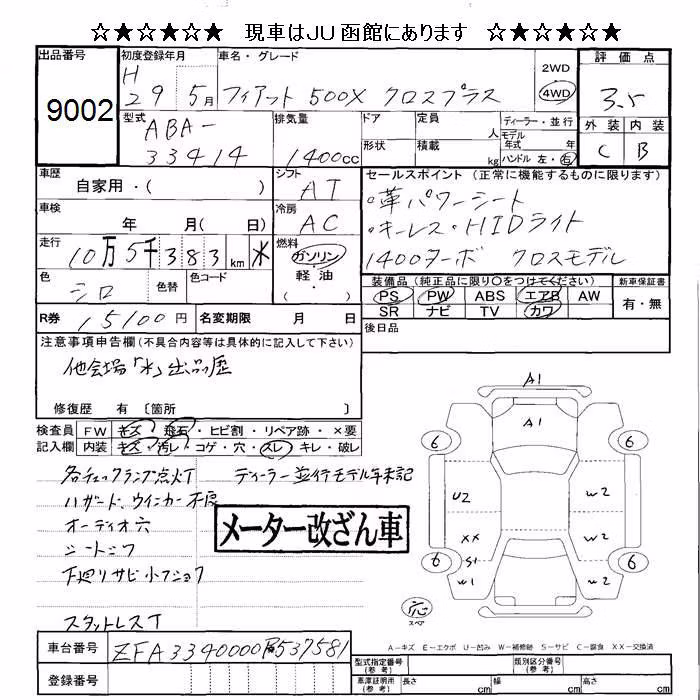 ☆★☆★☆★ 現車はJU函館にあります ☆★☆★☆★
出品番号
9002
初度登録年月
H
29 5月
車名・グレード
フィアット 500X クロスプラス
2WD
4WD
評価点
3.5
外装 内装
C B
型式
ABA-
33414
排気量
1400cc
ドア
形状
定員
人
積載
kg
ディーラー・並行
モデル
年式 年
ハンドル 左・右
車歴
自家用・( )
シフト
AT
車検
年 月( 日)
冷房
AC
走行
10万5千383km ※
燃料
ガソリン
軽・油
( )
色
シロ
色替
色コード
セールスポイント (正常に機能するものに限ります)
・革パワーシート
・キーレス・HIDライト
1400ターボ クロスモデル
装備品 (純正品に限り○をつけてください)
PS PW ABS エアB AW
SR ナビ TV カワ
新車保証書
有・無
R券 15100円
名変期限 月 日
後日品
注意事項申告欄 (不具合内容等は具体的に記入して下さい)
他会場「※」出品歴
修復歴 有 〔箇所 〕
検査員
記入欄
FW キズ・飛石・ヒビ割・リペア跡・×要
内装 キズ・汚レ・コゲ・穴・スレ・キレ・破レ
各チェックランプ点灯
ディーラー並行モデル年未記
ハザード、ウインカー不良
オーディオ穴
シートシワ
下廻りサビ小フショク
スタットレスT
メーター改ざん車
A1
A1
6 6
U2 W2
XX W2
S1
6 6
W1 W2
応
スペア
A-キズ E-エクボ U-凹み W-補修跡 S-サビ C-腐食 XX-交換済
車台番号
ZFA3340000P537581
登録番号
型式指定番号
(参考)
類別区分番号
(参考)
車庫証明所
(参考)
長さ cm
幅 cm
高さ cm